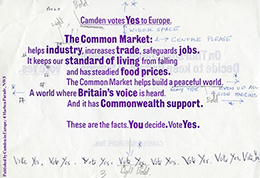 Camden votes Yes to Europe.
The Common Market:
helps industry, increases trade, safeguards jobs.
It keeps our standard of living from falling
and has steadied food prices.
The Common Market helps build a peaceful world.
A world where Britain's voice is heard.
And it has Commonwealth support.
These are the facts. You decide. Vote Yes.
WIDER SPACE
CENTRE PLEASE
Bold
Vote Yes, Vote Yes, Vote Yes, Vote Yes, Vote Yes, Vote Yes, Vote Yes, Vote Yes
3
Light Bold